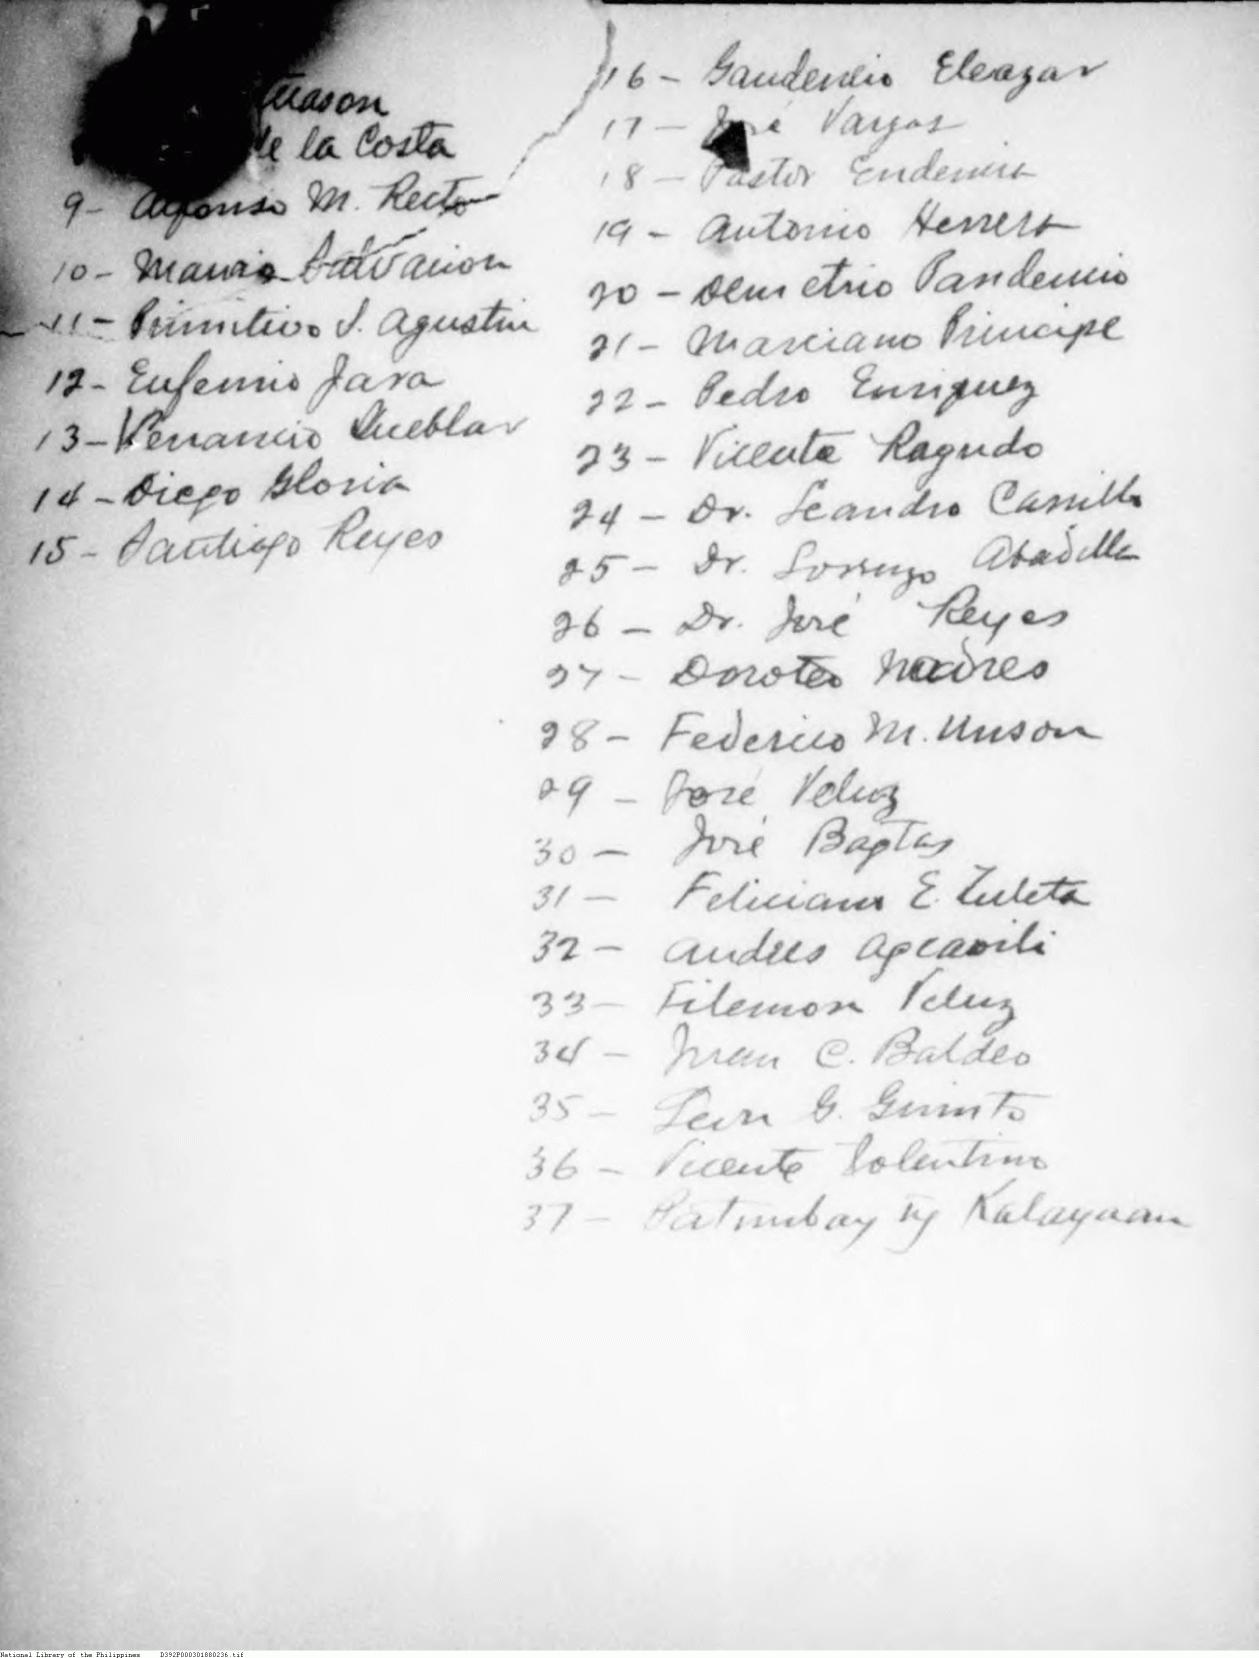 Tuason
de la Costa
9- Alfonso M. Recto
10- Mario Salvacion
11- Primitivo S. Agustin
12- Eufemio Jara
13- Venancio Cueblar
14- Diego Gloria
15- Santiago Reyes
16- Gaudencio Eleazar
17- José Vargas
18- Pastor Endencia
19- Antonio Herrera
20- Demetrio Pandencio
21- Marciano Principe
22- Pedro Enriquez
23- Vicente Ragudo
24- Dr. Leandro Carrillo
25- Dr. Lorenzo Abadilla
26- Dr. José Reyes
27- Doroteo
28- Federico M. Unson
29- José Veluz
30- José Bagtas
31- Feliciano E. Zuleta
32- Andres Agcaoili
33- Filemon Veluz
34- Juan C. Baldeo
35- Leon G. Guinto
36- Vicente Tolentino
37- Patnubay ng Kalayaan
National Library of the Philippines D392P000301880236.tif